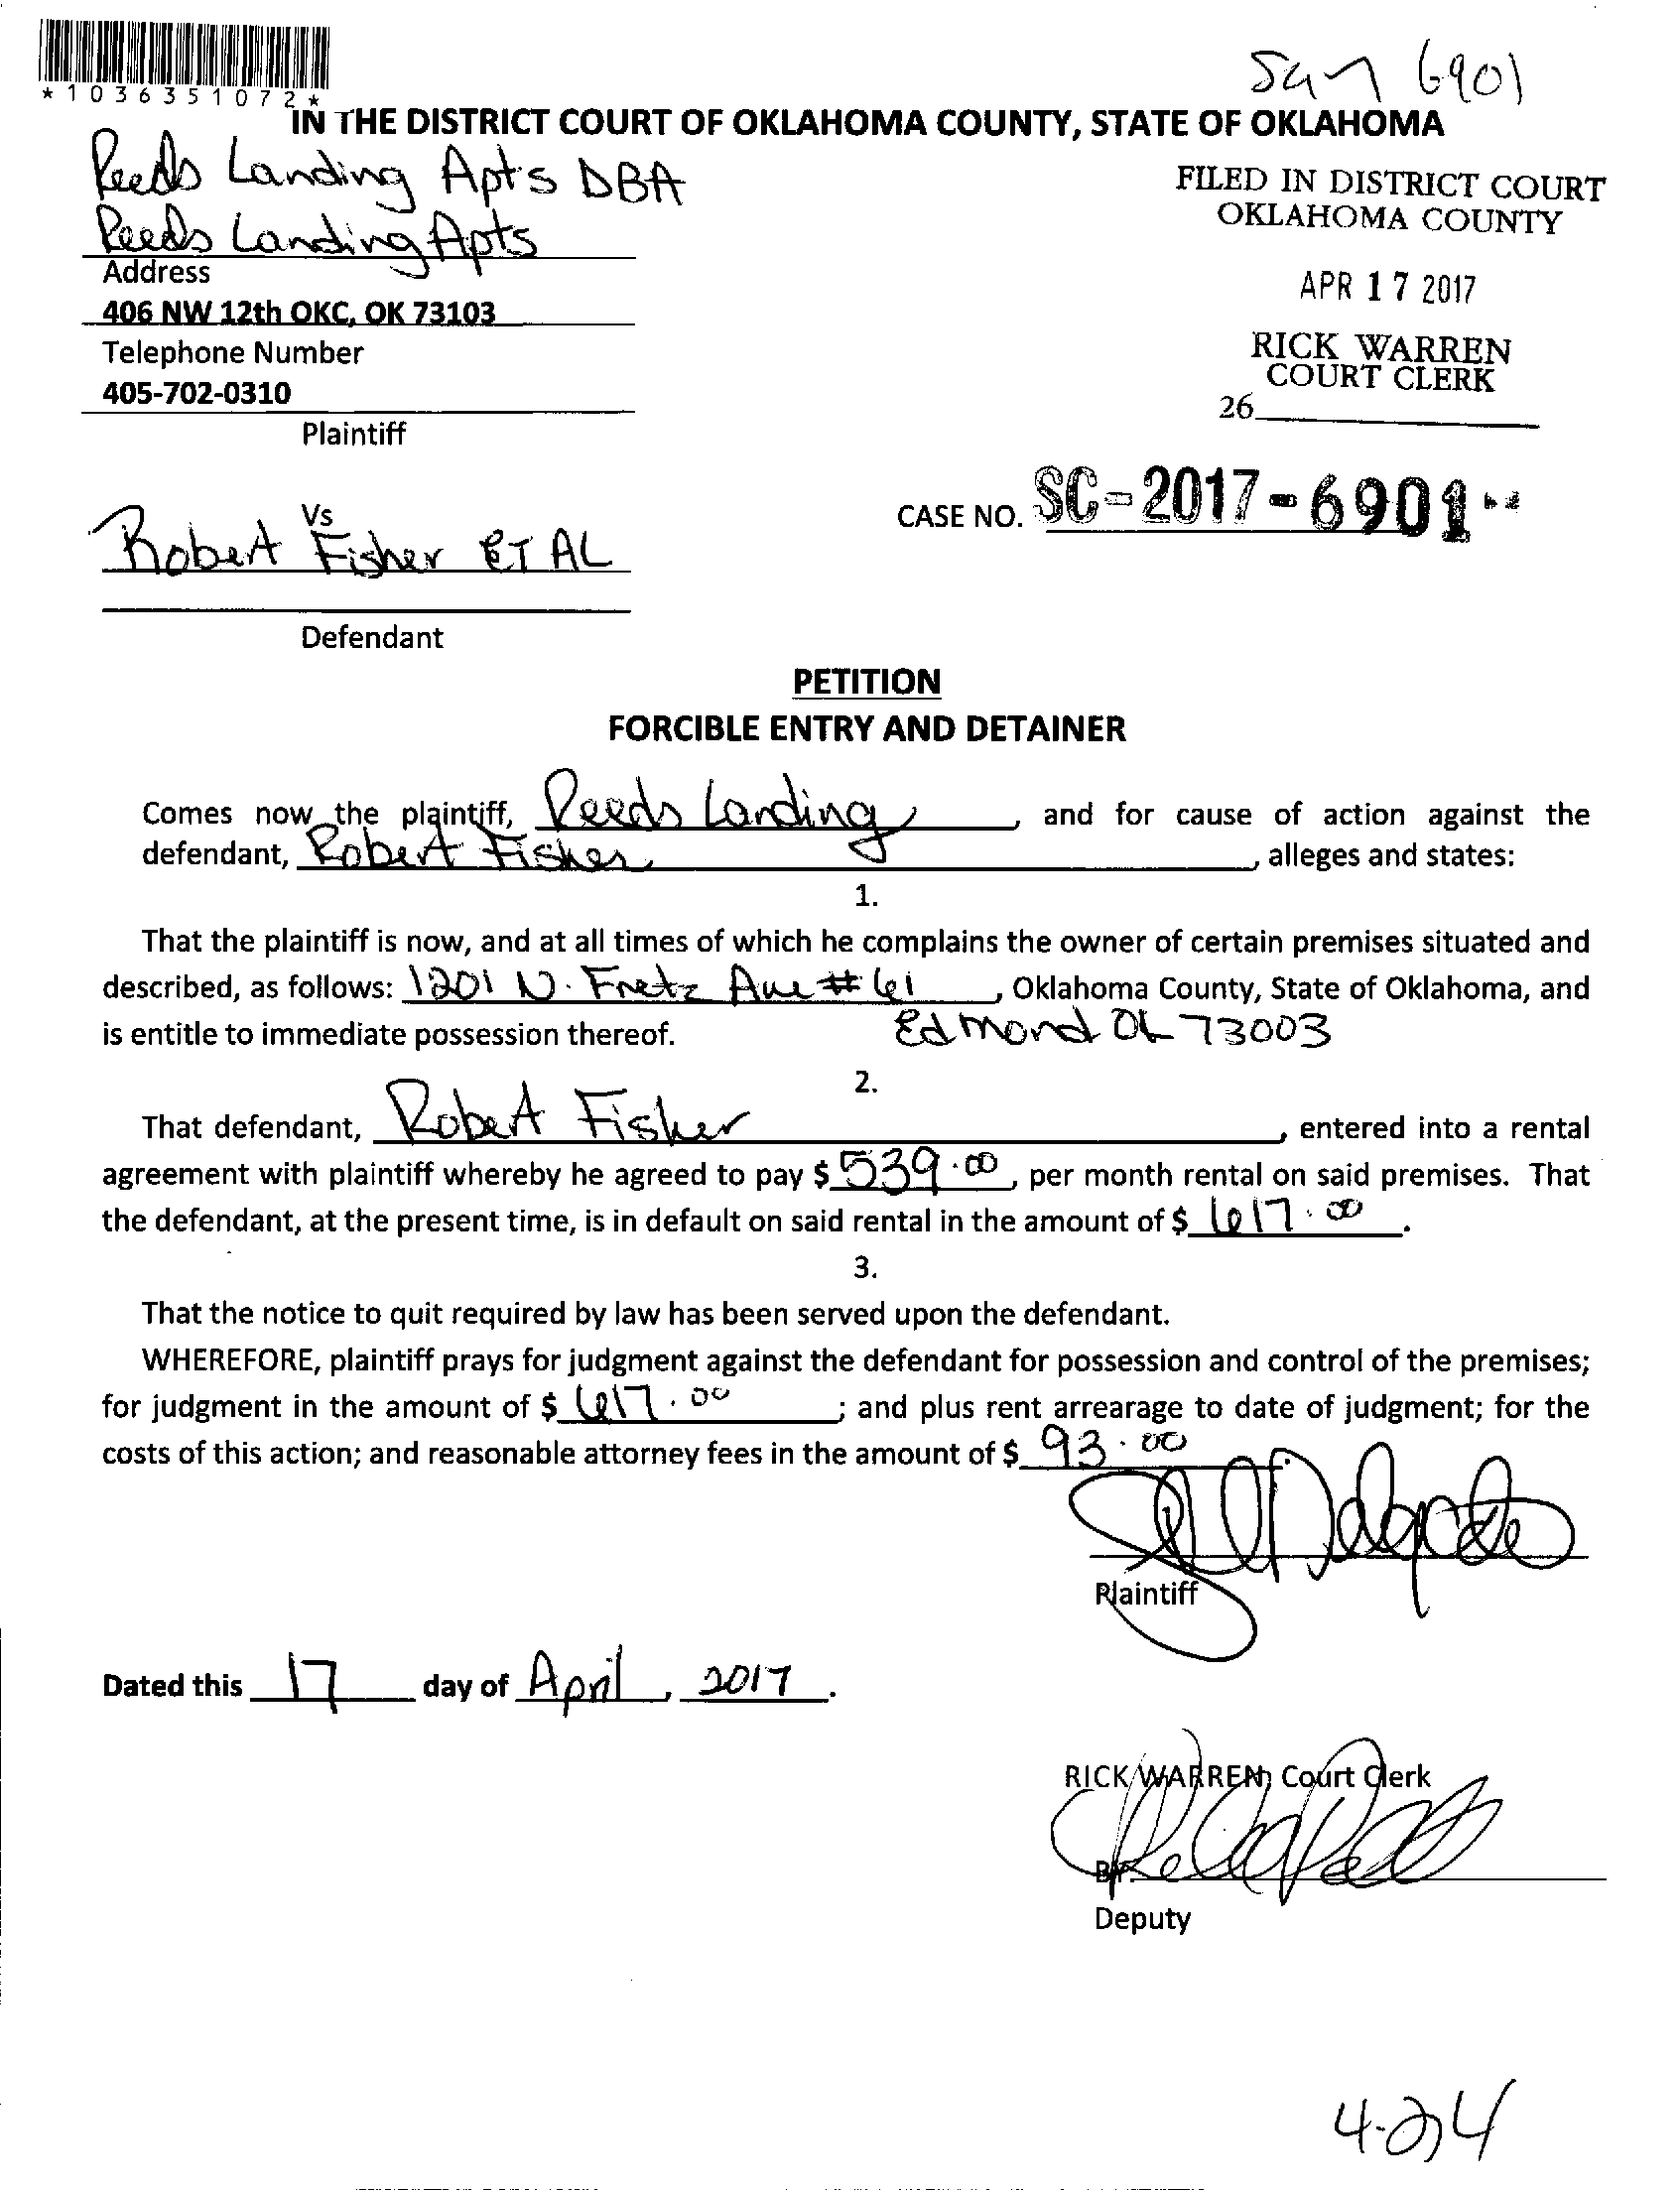 *1036351072*
6901
IN THE DISTRICT COURT OF OKLAHOMA COUNTY, STATE OF OKLAHOMA
Reeds Landing Apts DBA
Reeds Landing Apts
Address
406 NW 12th OKC, OK 73103
Telephone Number
405-702-0310
Plaintiff
FILED IN DISTRICT COURT
OKLAHOMA COUNTY
APR 17 2017
RICK WARREN
COURT CLERK
26
Vs
Robert Fisher ET AL
Defendant
CASE NO. SC-2017-6901
PETITION
FORCIBLE ENTRY AND DETAINER
Comes now the plaintiff, Reeds Landing, and for cause of action against the
defendant, Robert Fisher, alleges and states:
1.
That the plaintiff is now, and at all times of which he complains the owner of certain premises situated and
described, as follows: 1201 N. Fretz Ave #61, Oklahoma County, State of Oklahoma, and
is entitle to immediate possession thereof. Edmond OK 73003
2.
That defendant, Robert Fisher, entered into a rental
agreement with plaintiff whereby he agreed to pay $ 539.00, per month rental on said premises. That
the defendant, at the present time, is in default on said rental in the amount of $ 617.00.
3.
That the notice to quit required by law has been served upon the defendant.
WHEREFORE, plaintiff prays for judgment against the defendant for possession and control of the premises;
for judgment in the amount of $ 617.00; and plus rent arrearage to date of judgment; for the
costs of this action; and reasonable attorney fees in the amount of $ 93.00.
Plaintiff
Dated this 17 day of April, 2017.
RICK WARREN, Court Clerk
BY
Deputy
4-24